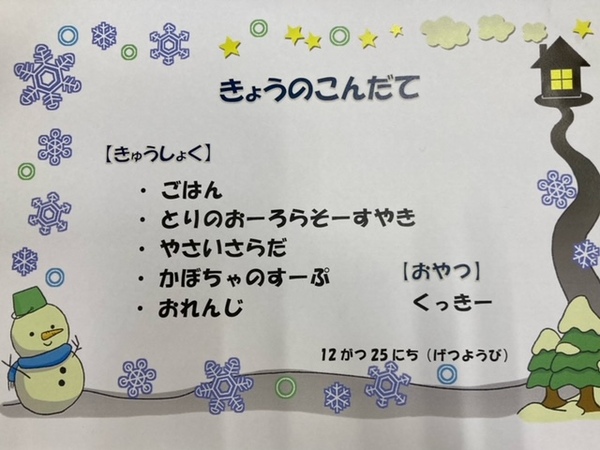 きょうのこんだて
【きゅうしょく】
・ ごはん
・ とりのおーろらそーすやき
・ やさいさらだ
・ かぼちゃのすーぷ
・ おれんじ
【おやつ】
くっきー
12がつ25にち（げつようび）